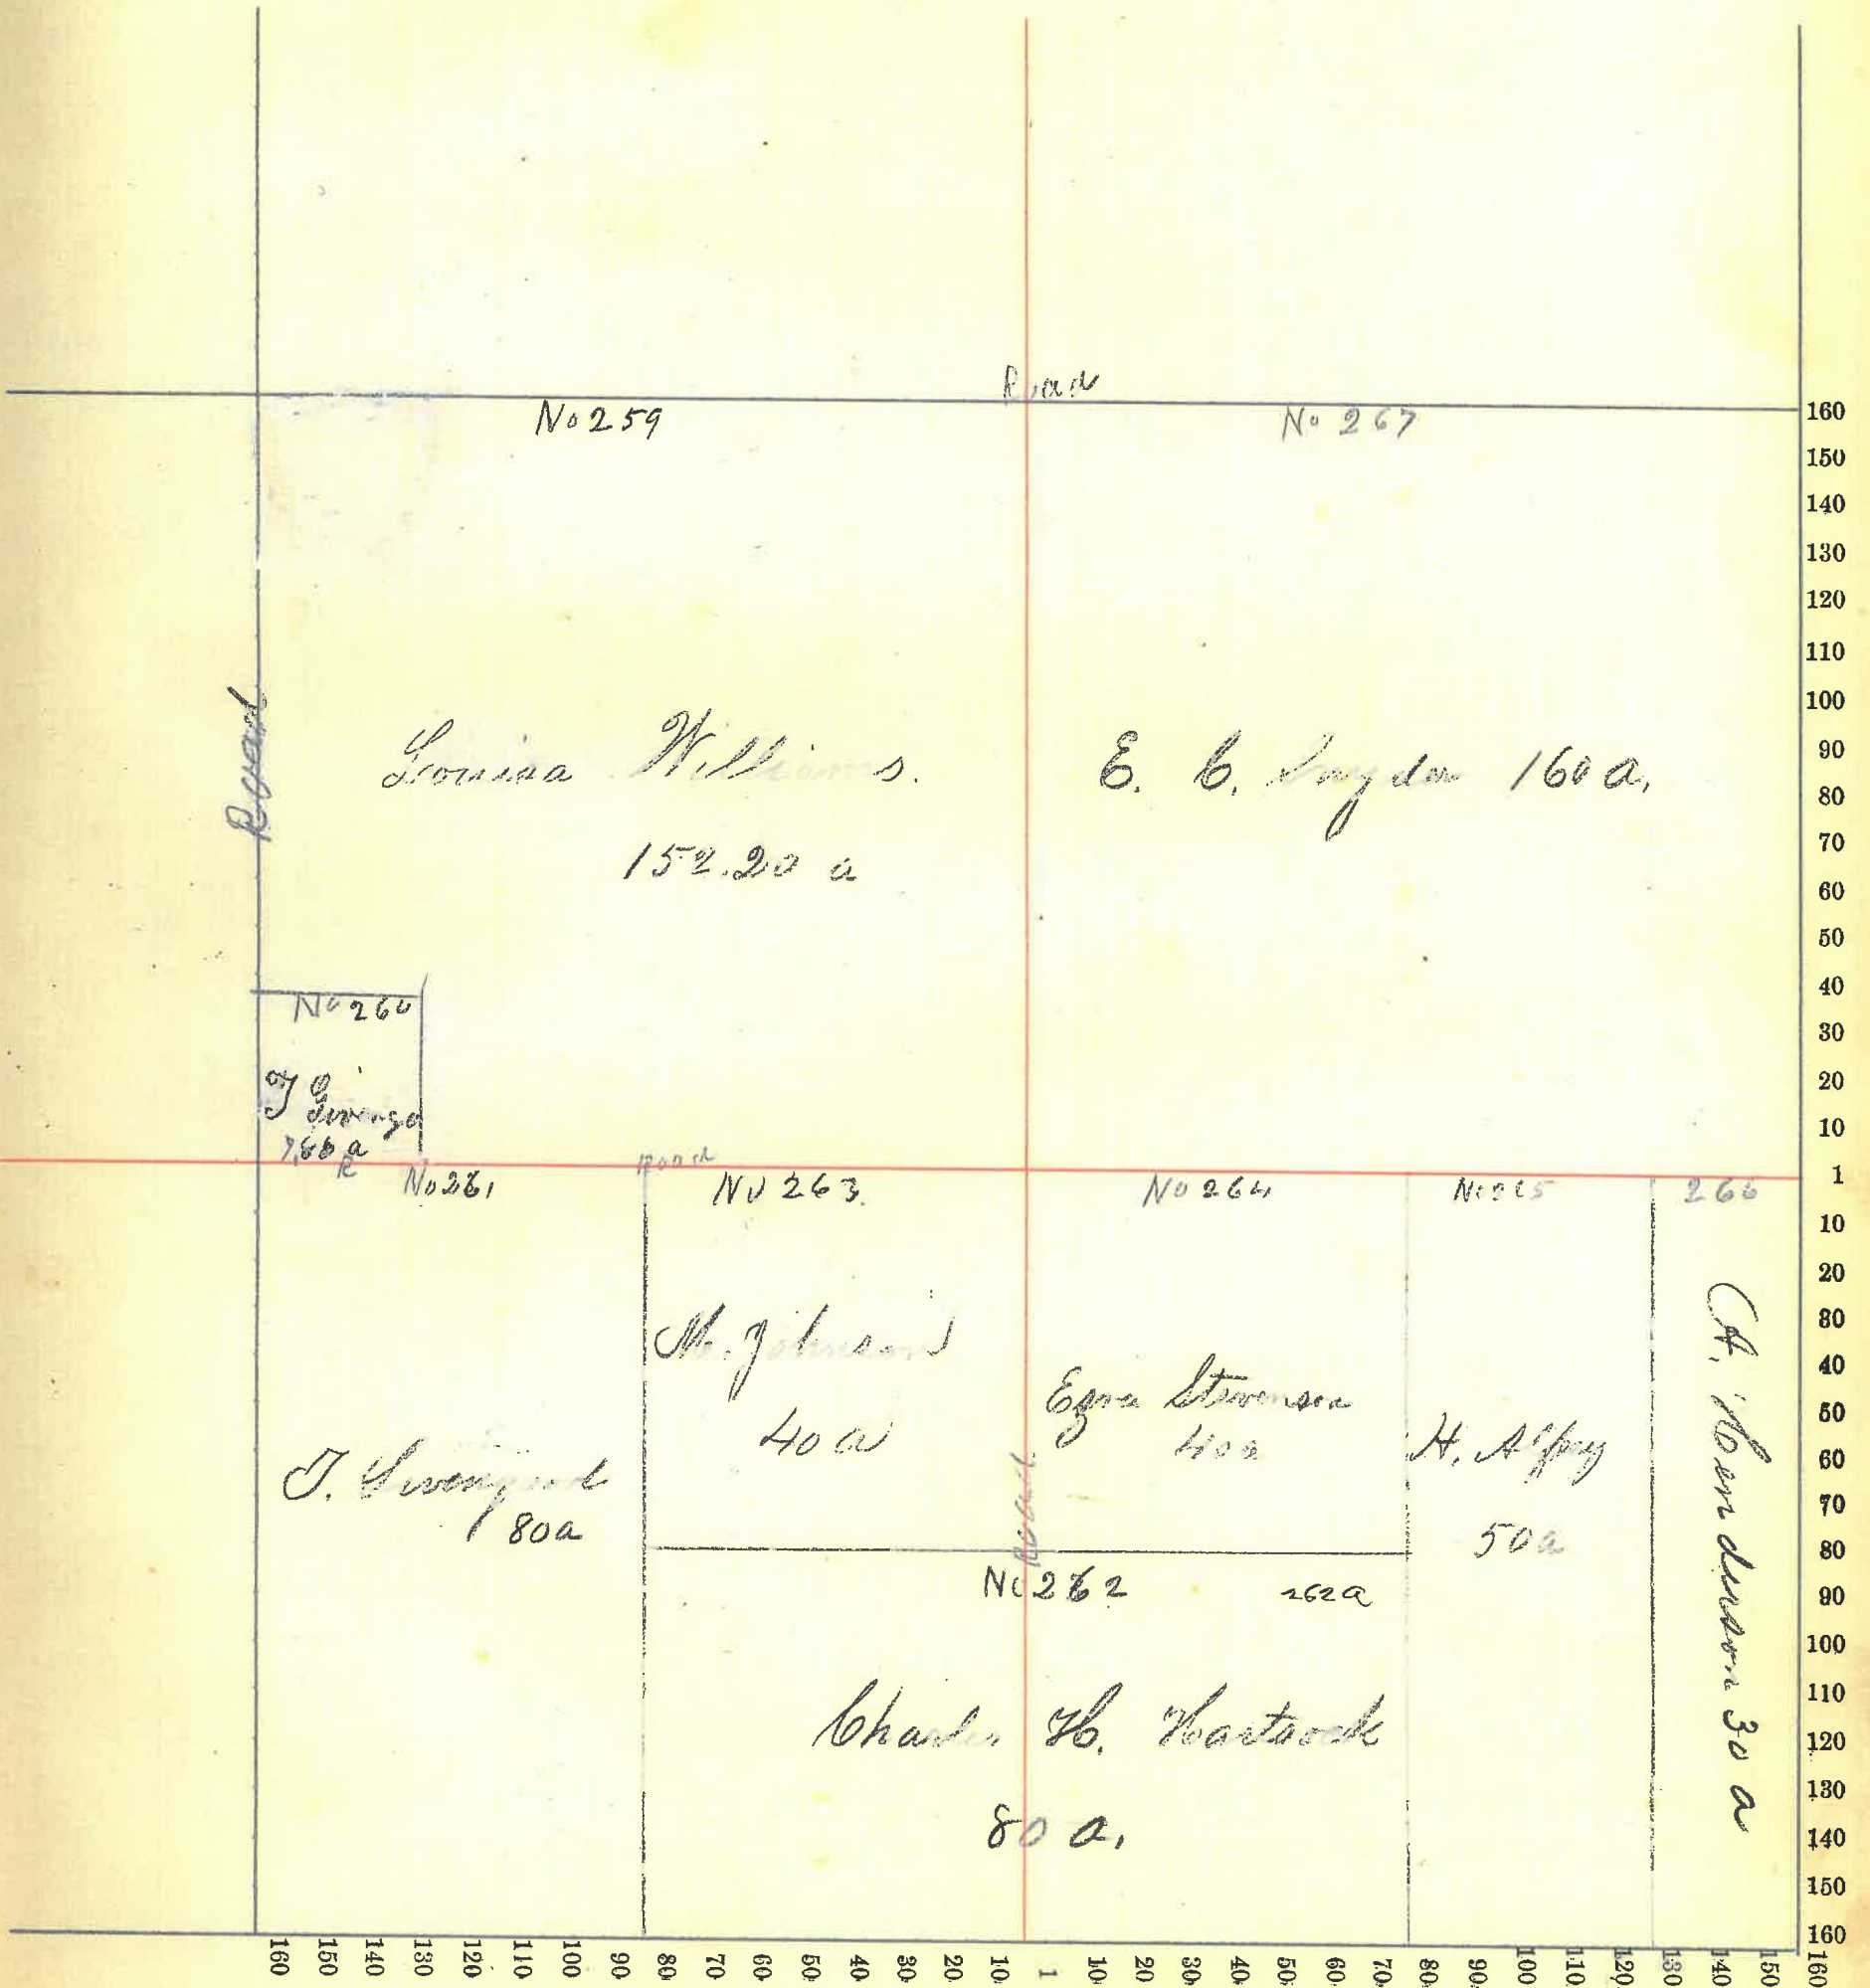 Road
No 259
No 267
Road
Louisa Williams.
152.20 a
E. C. Snyder 160 a.
No 260
T
a
R
Road
No 261
No 263
No 264
No 265
266
M. Johnson
40 a
Ezra Stevenson
40 a
H. Alfrey
50 a
A. Henderson 30 a
T. Livengood
80a
Road
No 262
262a
Charles H. Hartsock
80 a.
160
150
140
130
120
110
100
90
80
70
60
50
40
30
20
10
1
10
20
30
40
50
60
70
80
90
100
110
120
130
140
150
160
160 150 140 130 120 110 100 90 80 70 60 50 40 30 20 10 1 10 20 30 40 50 60 70 80 90 100 110 120 130 140 150 160